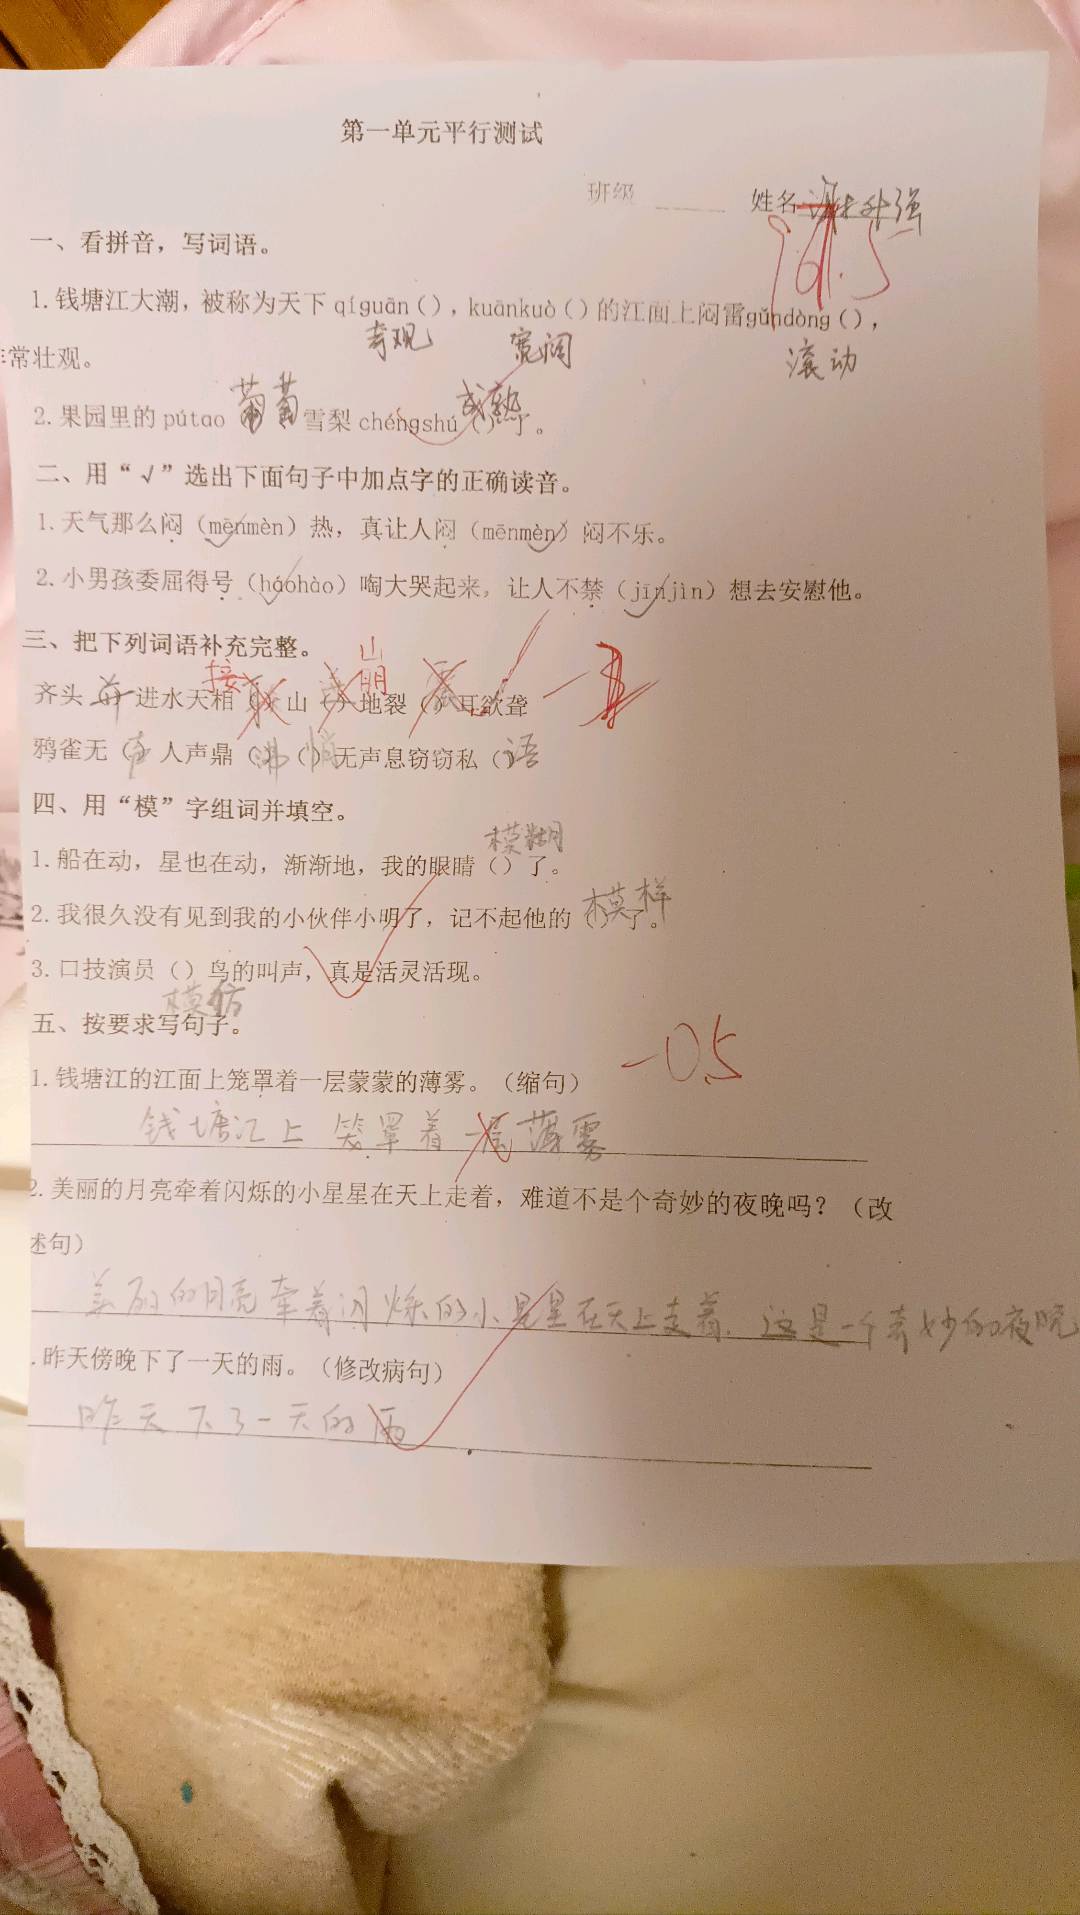 第一单元平行测试
班级 ______ 姓名 谢升强
96.5
一、看拼音，写词语。
1.钱塘江大潮，被称为天下qíguān（），kuānkuò（）的江面上闷雷gǔndòng（），
奇观 宽阔 滚动
常壮观。
2.果园里的pútao 葡萄 雪梨chéngshú（成熟）了。
二、用“√”选出下面句子中加点字的正确读音。
1.天气那么闷（mēnmèn）热，真让人闷（mēnmèn）闷不乐。
2.小男孩委屈得号（háohào）啕大哭起来，让人不禁（jīnjìn）想去安慰他。
三、把下列词语补充完整。
山
接 崩
齐头（并）进水天相（）山（）地裂（震）耳欲聋
鸦雀无（声）人声鼎（沸）（悄）无声息窃窃私（语
四、用“模”字组词并填空。
模糊
1.船在动，星也在动，渐渐地，我的眼睛（）了。
2.我很久没有见到我的小伙伴小明了，记不起他的（模样）了。
3.口技演员（）鸟的叫声，真是活灵活现。
模仿
五、按要求写句子。
-0.5
1.钱塘江的江面上笼罩着一层蒙蒙的薄雾。（缩句）
钱塘江上笼罩着一层薄雾
2.美丽的月亮牵着闪烁的小星星在天上走着，难道不是个奇妙的夜晚吗？（改
述句）
美丽的月亮牵着闪烁的小星星在天上走着，这是一个奇妙的夜晚
.昨天傍晚下了一天的雨。（修改病句）
昨天下了一天的雨